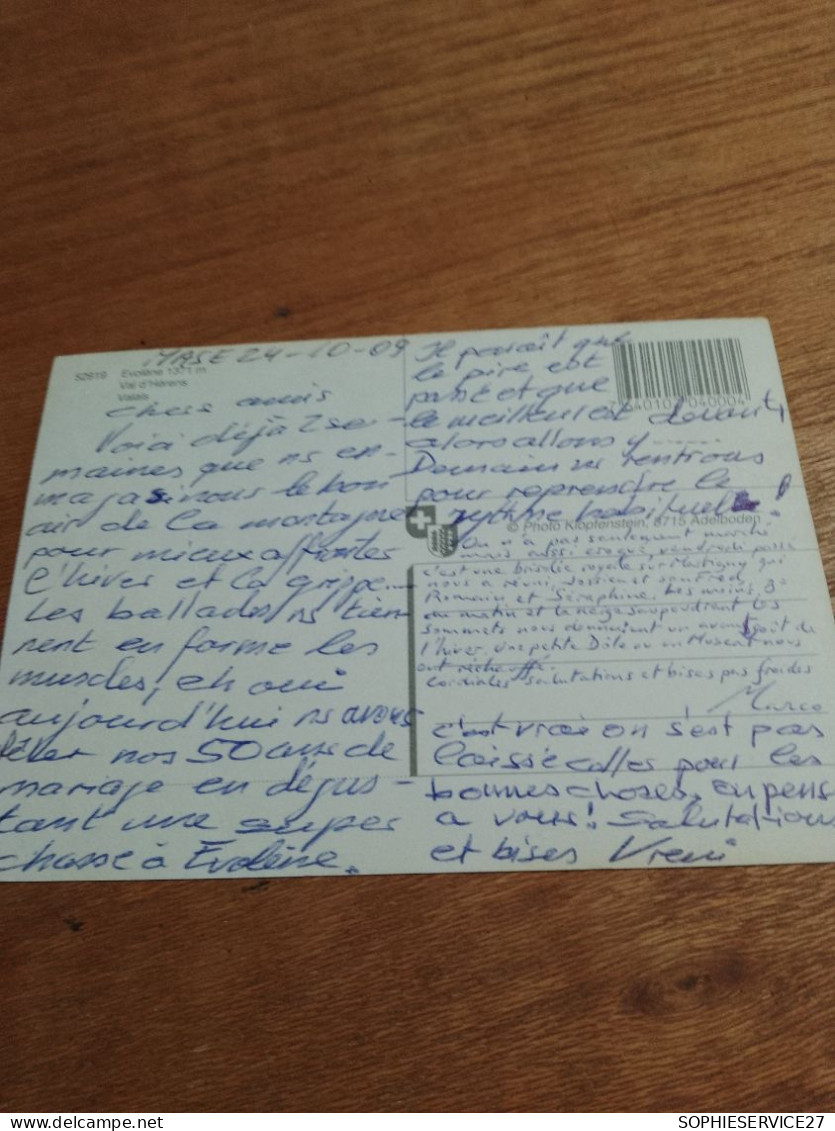 MASE 24-10-09
52619 Evolène 1371 m
Val d'Hérens
Valais
chers amis
Voici déjà 2 se-
maines que ns en-
magasinons le bon
air de la montagne
pour mieux affronter
l'hiver et la grippe....
Les ballades ns tien-
nent en forme les
muscles, eh oui
aujourd'hui ns avons
fêter nos 50 ans de
mariage en dégus-
tant une super
chasse à Evolène.
Il paraît que
le pire est
passé et que
le meilleur est devant,
alors allons y......
Demain ns rentrons
pour reprendre le
rythme habituel!
7 640101 040004
© Photo Klopfenstein, 8715 Adelboden
On n'a pas seulement marché
mais aussi croqué, vendredi passé
c'est une brisolée royale sur Martigny qui
nous a réuni, et
Romain et Séraphine. Les moins 8°
du matin et la neige saupoudrant les
sommets nous donnaient un avant goût de
l'hiver. Une petite Dôle ou un Muscat nous
ont réchauffé.
Cordiales salutations et bises pas froides
Marco
c'est vrai on s'est pas
laissé aller pour les
bonnes choses, on pense
a vous! Salutations
et bises Vreni
SOPHIESERVICE27